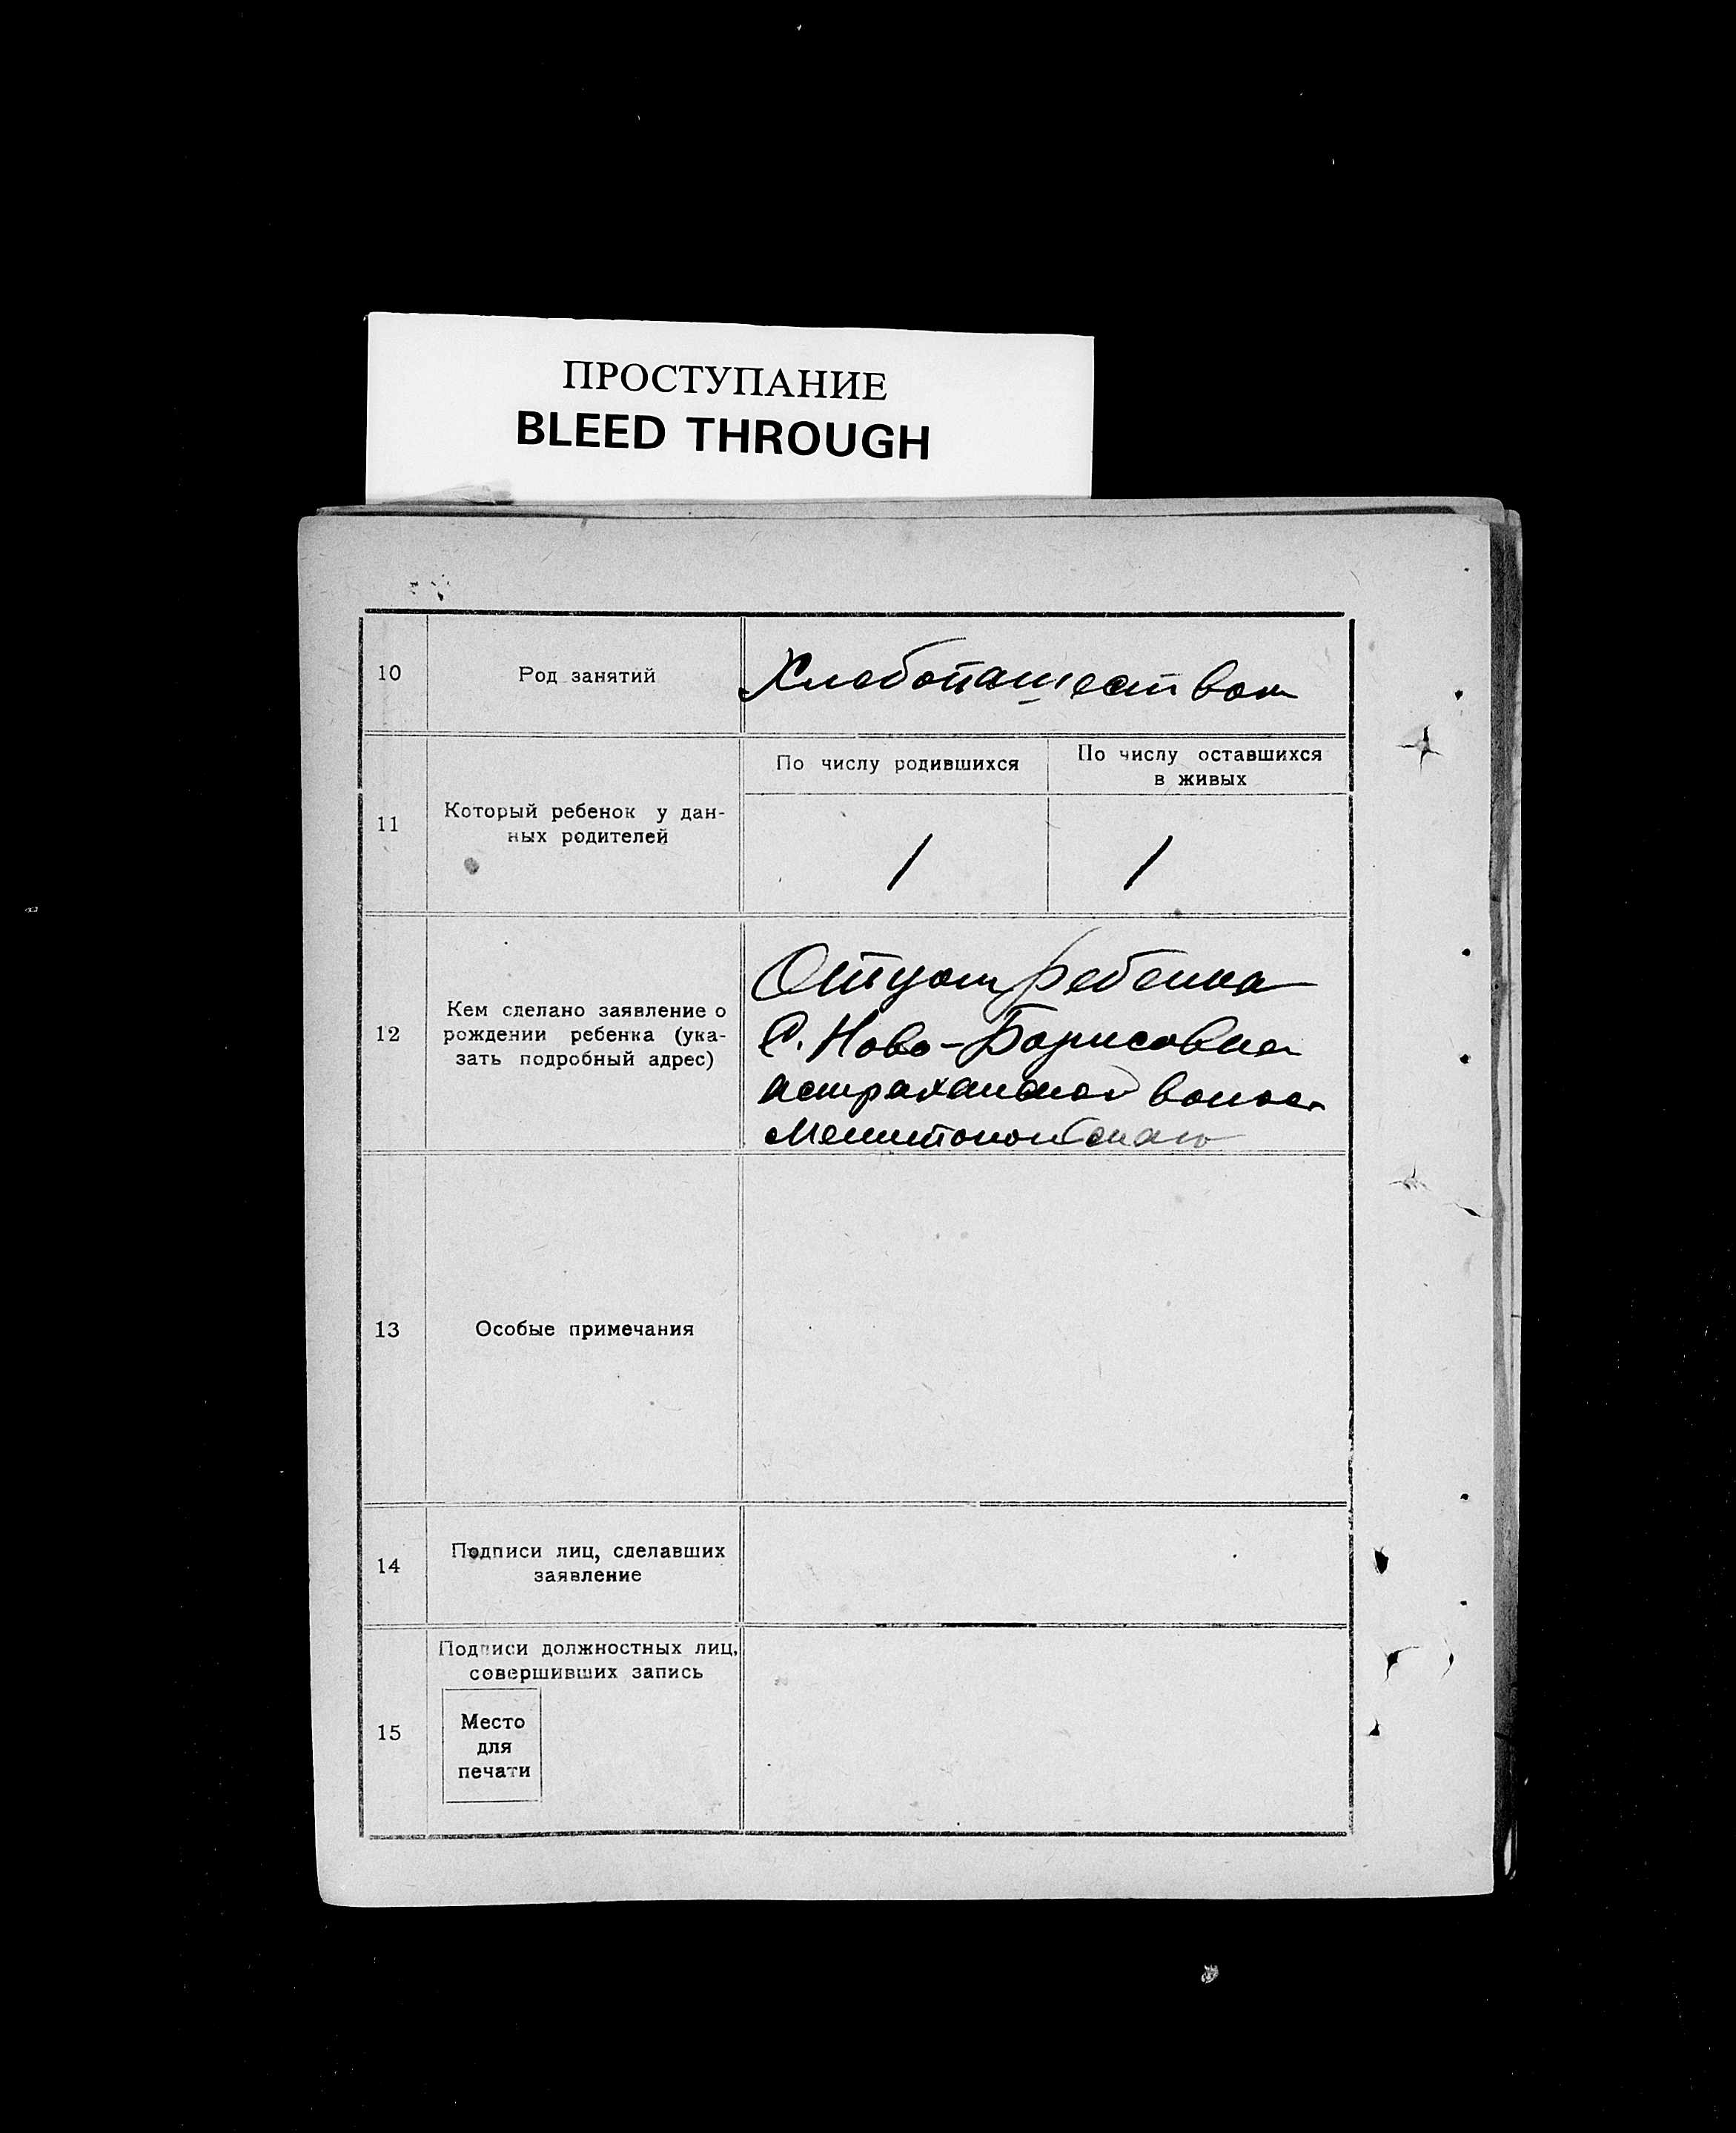 ПРОСТУПАНИЕ
BLEED THROUGH
10
Род занятий
Хлебопашеством
11
Который ребенок у дан-
ных родителей
По числу родившихся
По числу оставшихся
в живых
1
1
12
Кем сделано заявление о
рождении ребенка (ука-
зать подробный адрес)
Отцом ребенка
С. Ново-Борисовка
астраханской волос.
13
Особые примечания
14
Подписи лиц, сделавших
заявление
15
Подписи должностных лиц,
совершивших запись
Место
для
печати